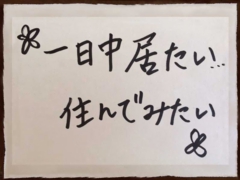 一日中居たい...
住んでみたい